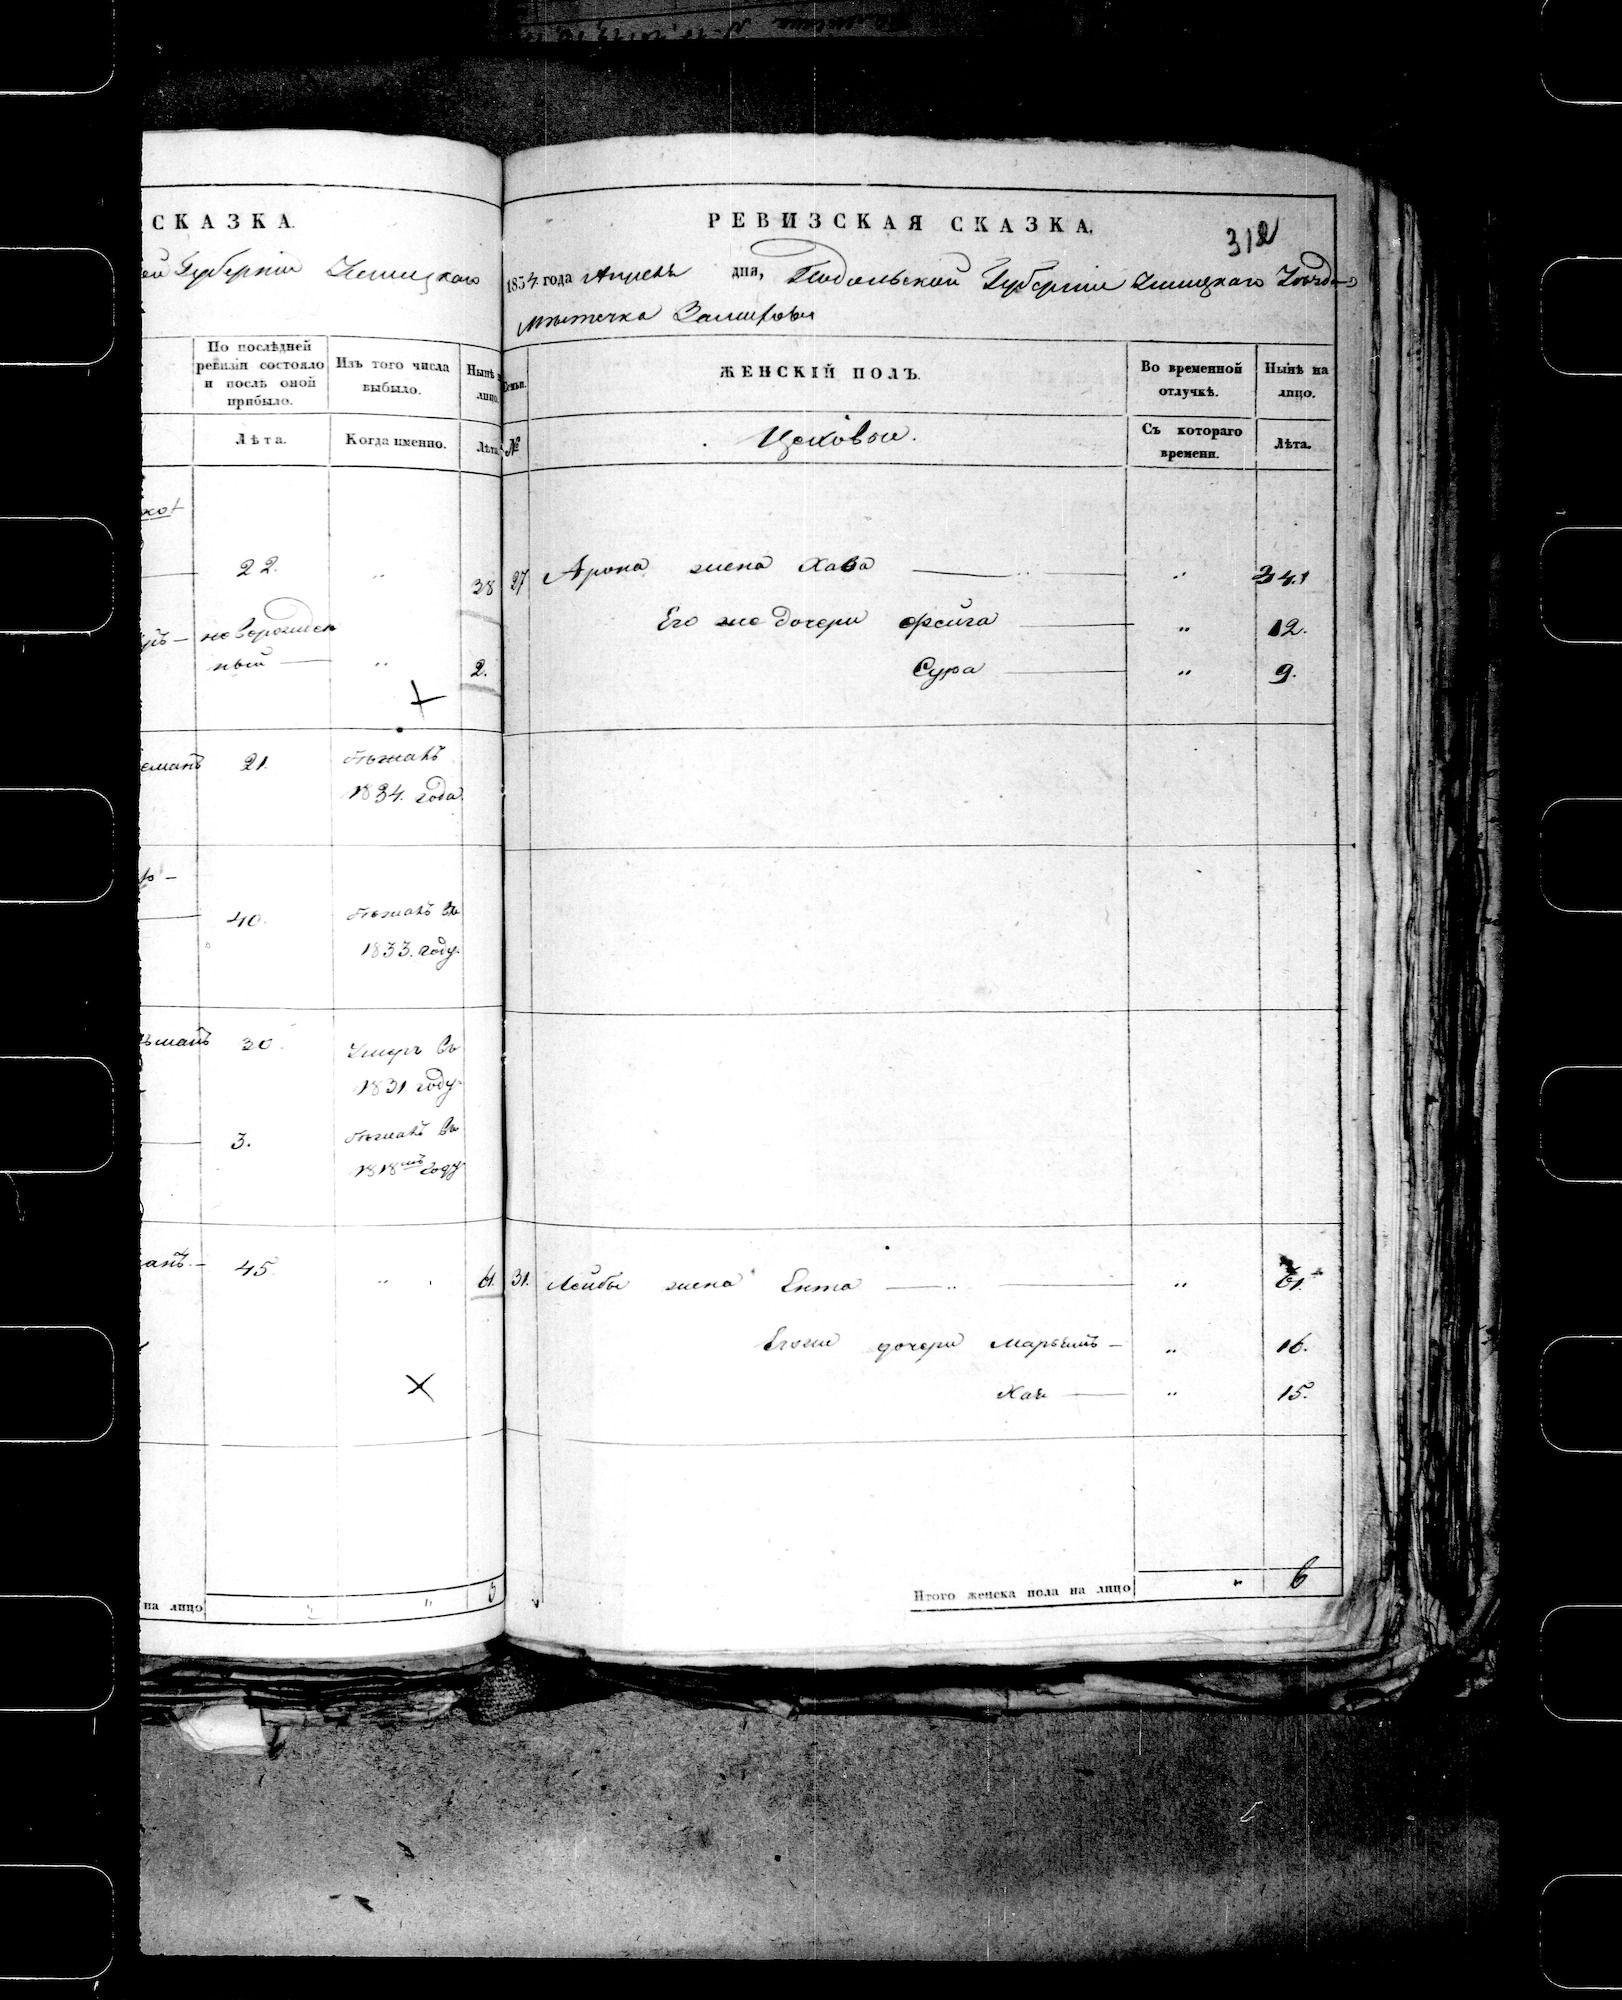 СКАЗКА.
ей Губерніи Ушицкаго
По послѣдней ревизіи состояло и послѣ оной прибыло.
Изъ того числа выбыло.
Нынѣ
лицо.
Лѣта.
Когда именно.
Лѣта.
22. " 38
новорожден
ный — " 2.
еманъ 21. бѣжалъ
1834. года
40. бѣжалъ въ
1833. году.
ьманъ 30. Умеръ въ
1831. году.
3. бѣжалъ въ
1818мъ году
анъ. — 45. " 61.
на лицо " " 3
РЕВИЗСКАЯ СКАЗКА.
312
1834 года Апреля дня, Подольской Губерніи Ушицкаго Уѣзда
мѣстечка
Семьи.
ЖЕНСКІЙ ПОЛЪ.
Во временной отлучкѣ.
Нынѣ на лицо.
№
Цеховые.
Съ котораго времени.
Лѣта.
27 Арона жена Хава — " 34.
Его же дочери Фейга — " 12.
Сура — " 9.
31. Лейбы жена Ента — " 61.
Егоже дочери Марьемъ — " 16.
Хая — " 15.
Итого женска пола на лицо " 6